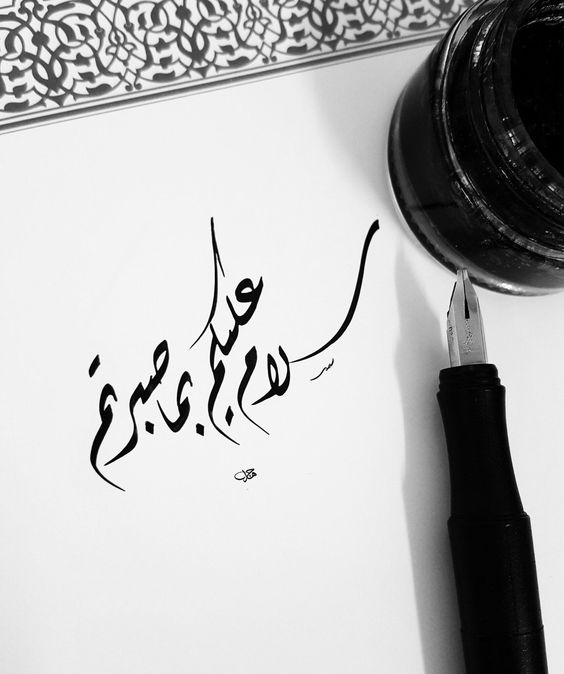 سلام عليكم بما صبرتم